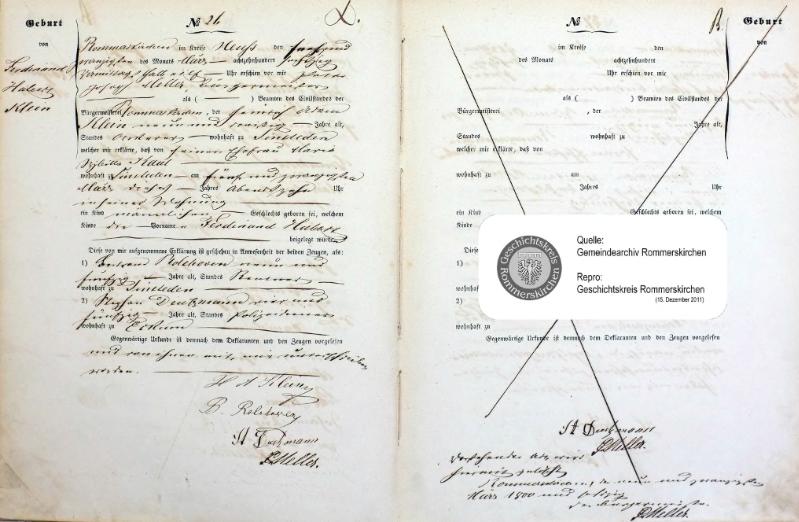 Geburt
von
Ferdinand
Hubert
Klein
№ 26
Rommerskirchen im Kreise Neuß den
zwanzigsten des Monats März achtzehnhundert sechzig
Vormittags halb Uhr erschien vor mir Peter
Joseph Meller, Bürgermeister
als ( ) Beamten des Civilstandes der
Bürgermeisterei Rommerskirchen, der Heinrich Adam
Klein neun und dreißig Jahre alt,
Standes Ackerer wohnhaft zu Sinsteden
welcher mir erklärte, daß von seiner Ehefrau Maria
Sybilla
wohnhaft zu Sinsteden am fünf und zwanzigsten
März dieses Jahres Abends zehn Uhr
in seiner Wohnung
ein Kind männlichen Geschlechts geboren sei, welchem
Kinde die Vornamen Ferdinand Hubert
beigelegt wurden
Diese von mir aufgenommene Erklärung ist geschehen in Anwesenheit der beiden Zeugen, als:
1) Rolshoven neun und
fünfzig Jahre alt, Standes Rentner
wohnhaft zu Sinsteden
2) Stephan Deutzmann vier und
fünfzig Jahre alt, Standes Polizeidiener
wohnhaft zu Eckum
Gegenwärtige Urkunde ist demnach dem Deklaranten und den Zeugen vorgelesen
und von ihnen mit mir unterschrieben
worden.
H A Klein
B. Rolshoven
St Deutzmann
PJMeller.
№
B.
Geburt
von
im Kreise den
des Monats achtzehnhundert
Uhr erschien vor mir
als ( ) Beamten des Civilstandes der
Bürgermeisterei , der
Jahre alt,
Standes wohnhaft zu
welcher mir erklärte, daß von
wohnhaft zu am
Jahres Uhr
ein Kind
Kinde
Diese
1)
wohnhaft
2)
wohnhaft zu
Gegenwärtige Urkunde ist demnach dem Deklaranten und den Zeugen vorgelesen
Geschichtskreis
Rommerskirchen
Quelle:
Gemeindearchiv Rommerskirchen
Repro:
Geschichtskreis Rommerskirchen
(15. Dezember 2011)
St Deutzmann
PJMeller.
Vorstehender Akt wird
hiermit gelöscht
Rommerskirchen, den neun und zwanzigsten
März 1800 und sechzig
Der Bürgermeister
PJMeller.